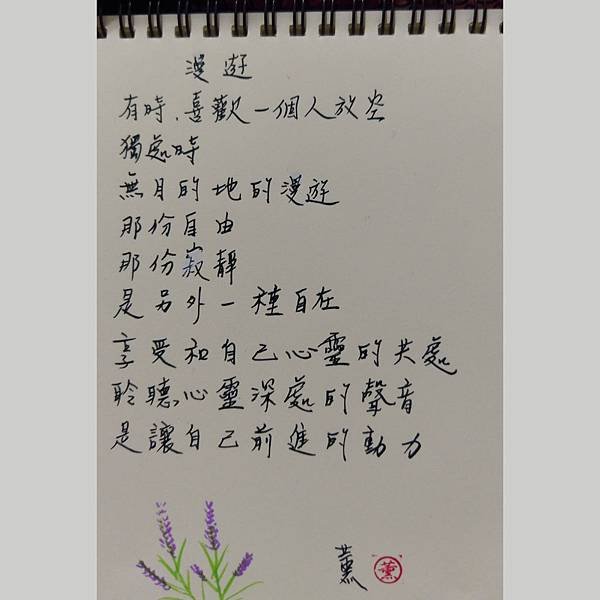 漫遊
有時，喜歡一個人放空
獨處時
無目的地的漫遊
那份自由
那份寂靜
是另外一種自在
享受和自己心靈的共處
聆聽心靈深處的聲音
是讓自己前進的動力
薰
薰